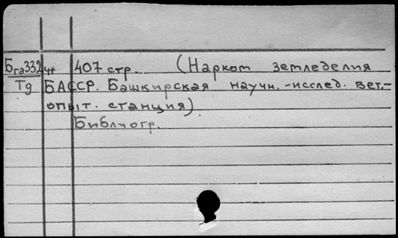 Бгз332 чт 407 стр. (Нарком земледелия
Тд БАССР. Башкирская научн.-исслед. вет.-
опыт. станция)
Библиогр.